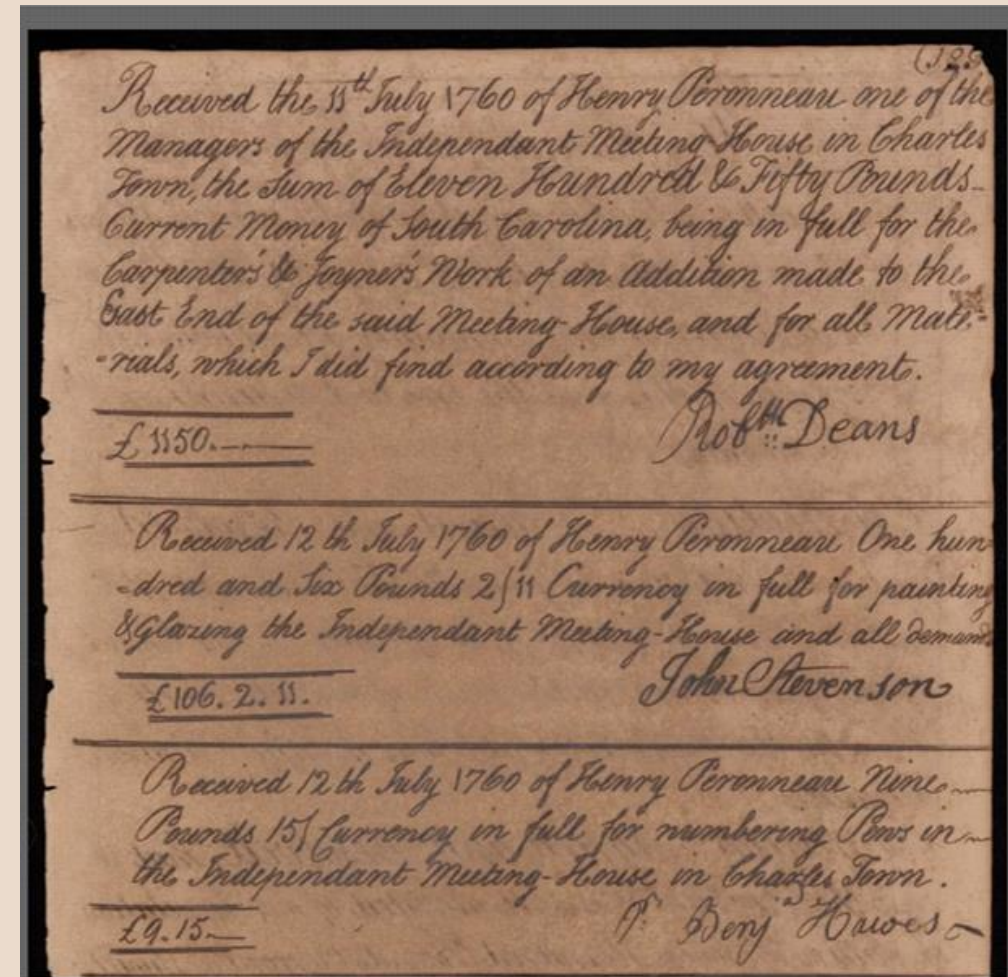 (129
Received the 11th July 1760 of Henry Peronneau one of the
Managers of the Independant Meeting House in Charles
Town, the Sum of Eleven Hundred & Fifty Pounds
Current Money of South Carolina, being in full for the
Carpenter's & Joyner's Work of an Addition made to the
East End of the said Meeting-House, and for all Mate-
-rials, which I did find according to my agreement.
£1150.—
Robth Deans
Received 12th July 1760 of Henry Peronneau One hun
-dred and Six Pounds 2/11 Currency in full for painting
& Glazing the Independant Meeting-House and all demands
£106. 2. 11.
John Stevenson
Received 12th July 1760 of Henry Peronneau Nine
Pounds 15/ Currency in full for numbering Pews in
the Independant Meeting-House in Charles Town.
£9.15—
Pr Benj Hawes